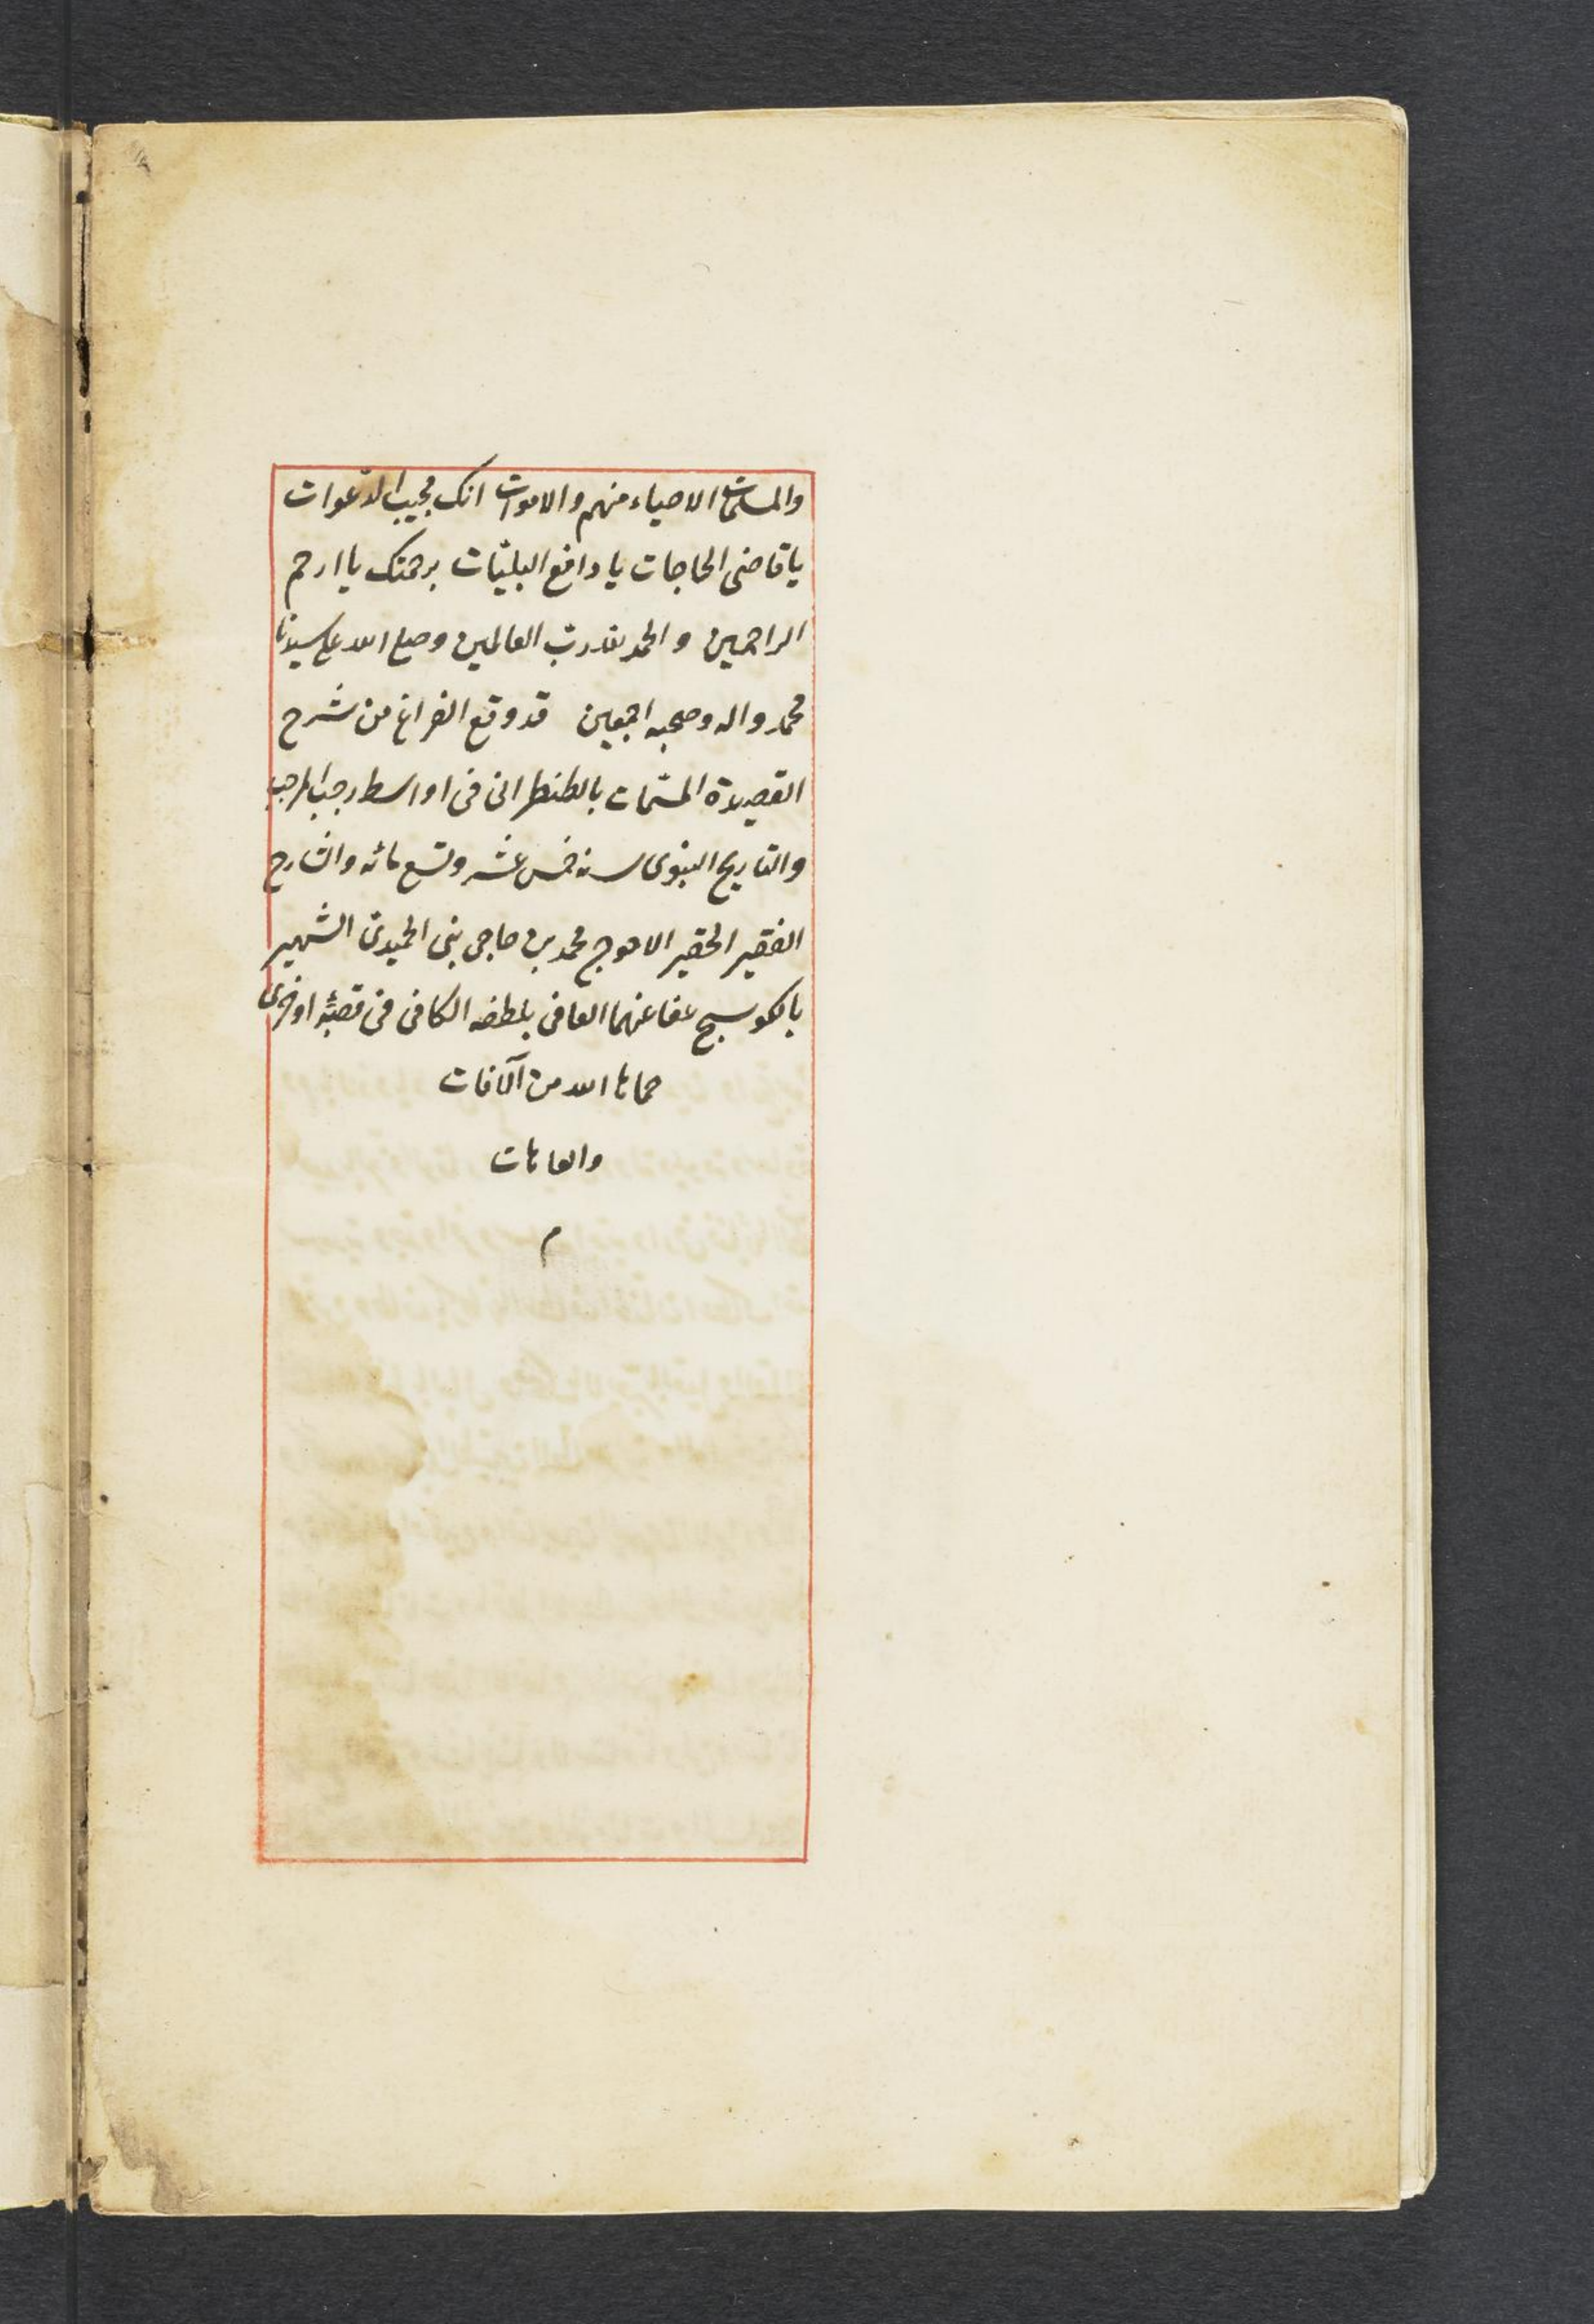 والمسلمات الاحياء منهم والاموات انك مجيب الدعوات
يا قاضى الحاجات يا دافع البليّات برحمتك يا ارحم
الراحمين والحمد لله ربّ العالمين وصلى الله على سيدنا
محمد واله وصحبه اجمعين قد وقع الفراغ من شرح
القصيدة المسمّات بالطنطرانى فى اواسط رجب المرجب
والتاريخ النبوى سنه خمس عشر وتسع مائه والشارح
الفقير الحقير الاحوج محمد بن حاجى بنى الحميدى الشهير
بالكوسج عفا عنهما العافى بلطفه الكافى فى قصبة
حماها الله من آلافات
والعاهات
م